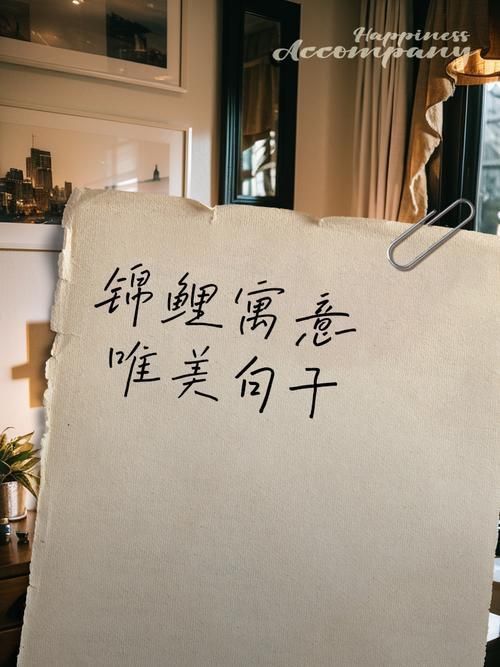 Happiness
Accompany
锦鲤寓意
唯美句子